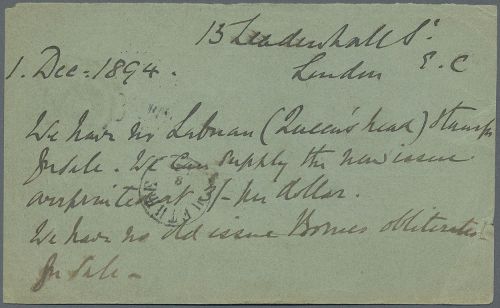 15 Leadenhall St.
London E.C
1. Dec. 1894.
We have no Labuan (Queen's head) stamps
for sale. We can supply the new issue
overprinted at 3/- per dollar.
We have no old issue Borneo obliterated
for sale -